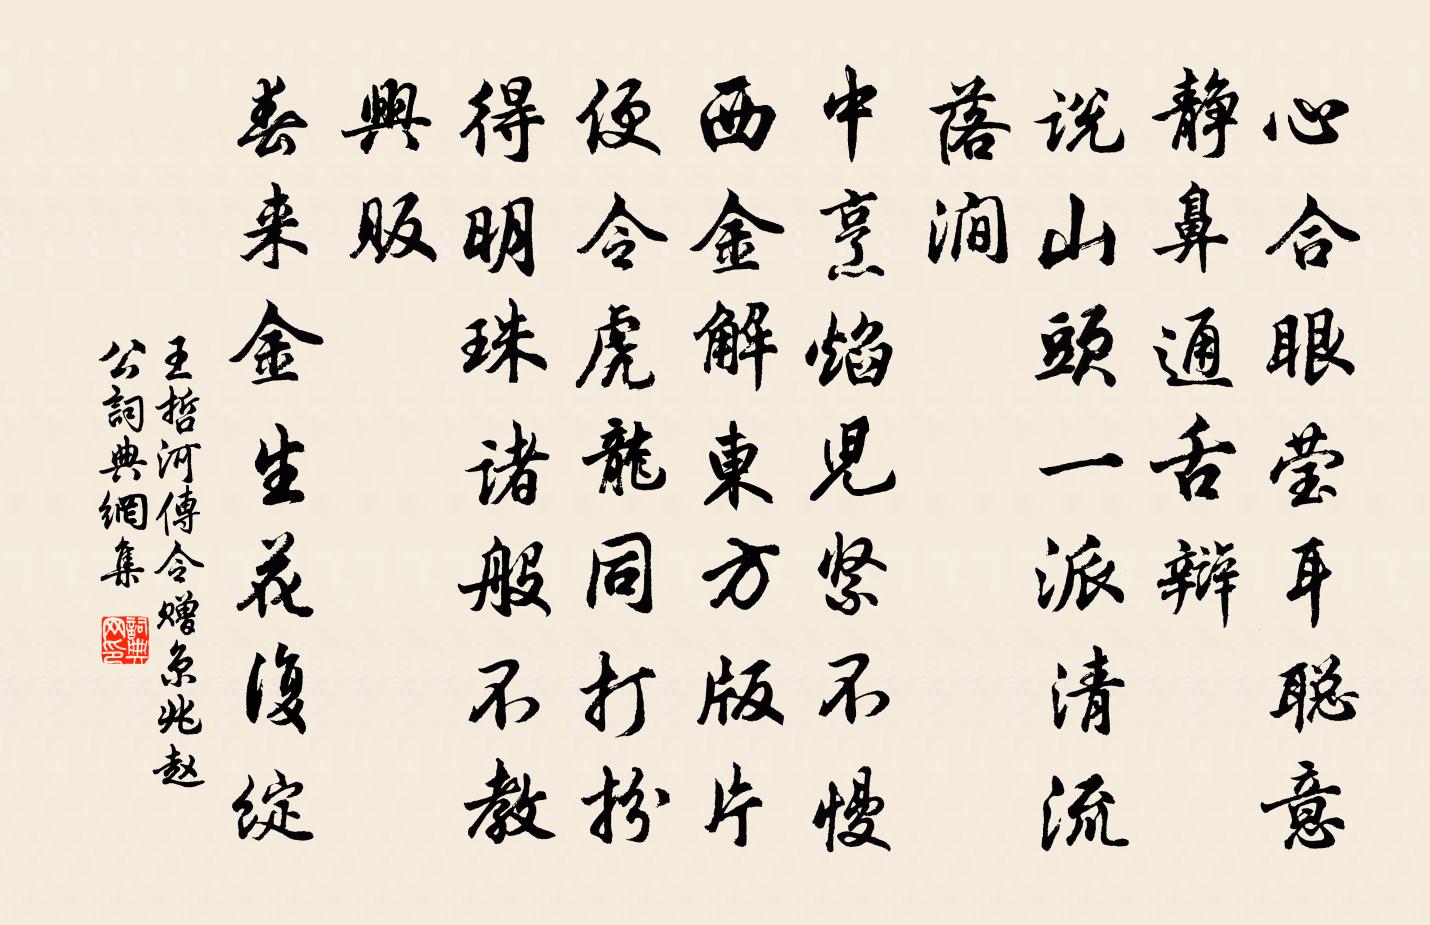 心合眼莹耳聪意
静鼻通舌辩
说山頭一派清流
落澗
中烹焰児紧不慢
西金解東方版片
便令虎龍同打扮
得明珠诸般不教
興贩
春来金生花復綻
王哲河傳令赠京兆赵
公詞典網集
詞典网印